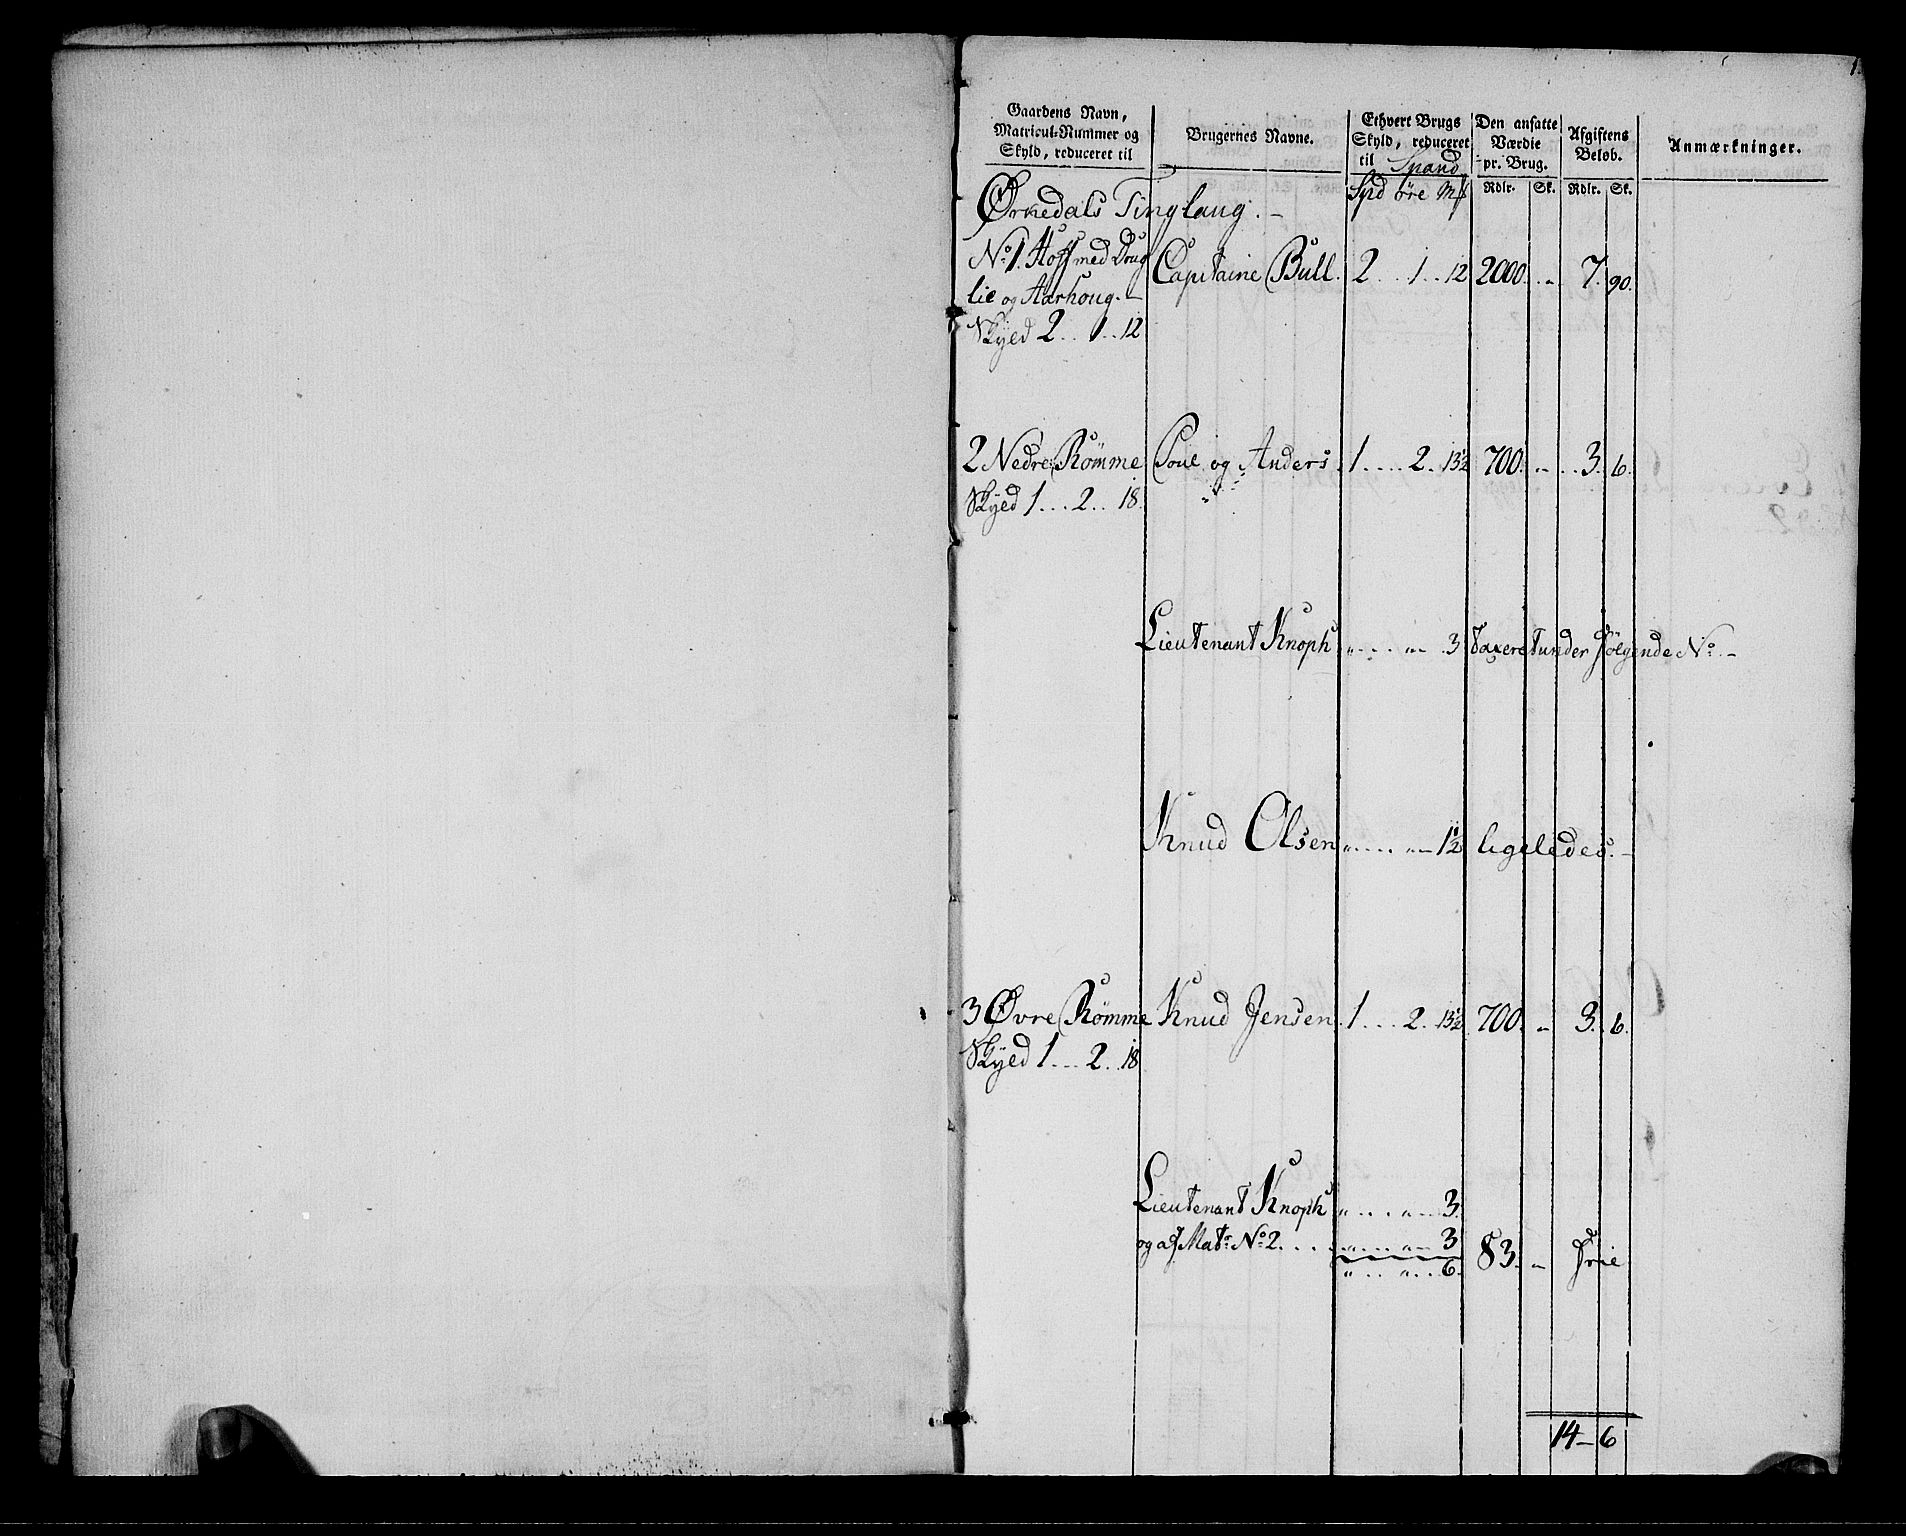 1.
Gaardens Navn, Matricul-Nummer og Skyld, reduceret til | Brugernes Navne. | Ethvert Brugs Skyld, reduceret til Spand | Den ansatte Værdie pr. Brug. | Afgiftens Beløb. | Anmærkninger.
Rdlr. | Sk. | Rdlr. | Sk.
Ørkedals Tinglaug. - Spd øre
No 1. Hoff med Capitaine Bull. 2 . . 1 . . 12 2000. „ 7. 90.
lie og Aarhoug. -
Skyld 2 . . 1 . . 12
2 Nedre Römme Poul og Anders 1 . . . . 2 . 13½ 700. „ 3. 6.
Skyld 1 . . . 2 . . 18.
Lieutenant Knoph „ . . . . „ 3 Taxeret under følgende No. -
Knud Olsen „ . . . . „ 1½ ligeledes. -
3 Øvre Römme Knud Jensen 1 . . . 2 . 13½ 700. „ 3. 6.
Skyld 1 . . . 2 . . 18
Lieutenant Knoph „ . . . . „ 3.
og af Matr. No 2. . . . „ . . . . „ 3 83. „ frie
„ . . . „ . . . 6.
14 - 6